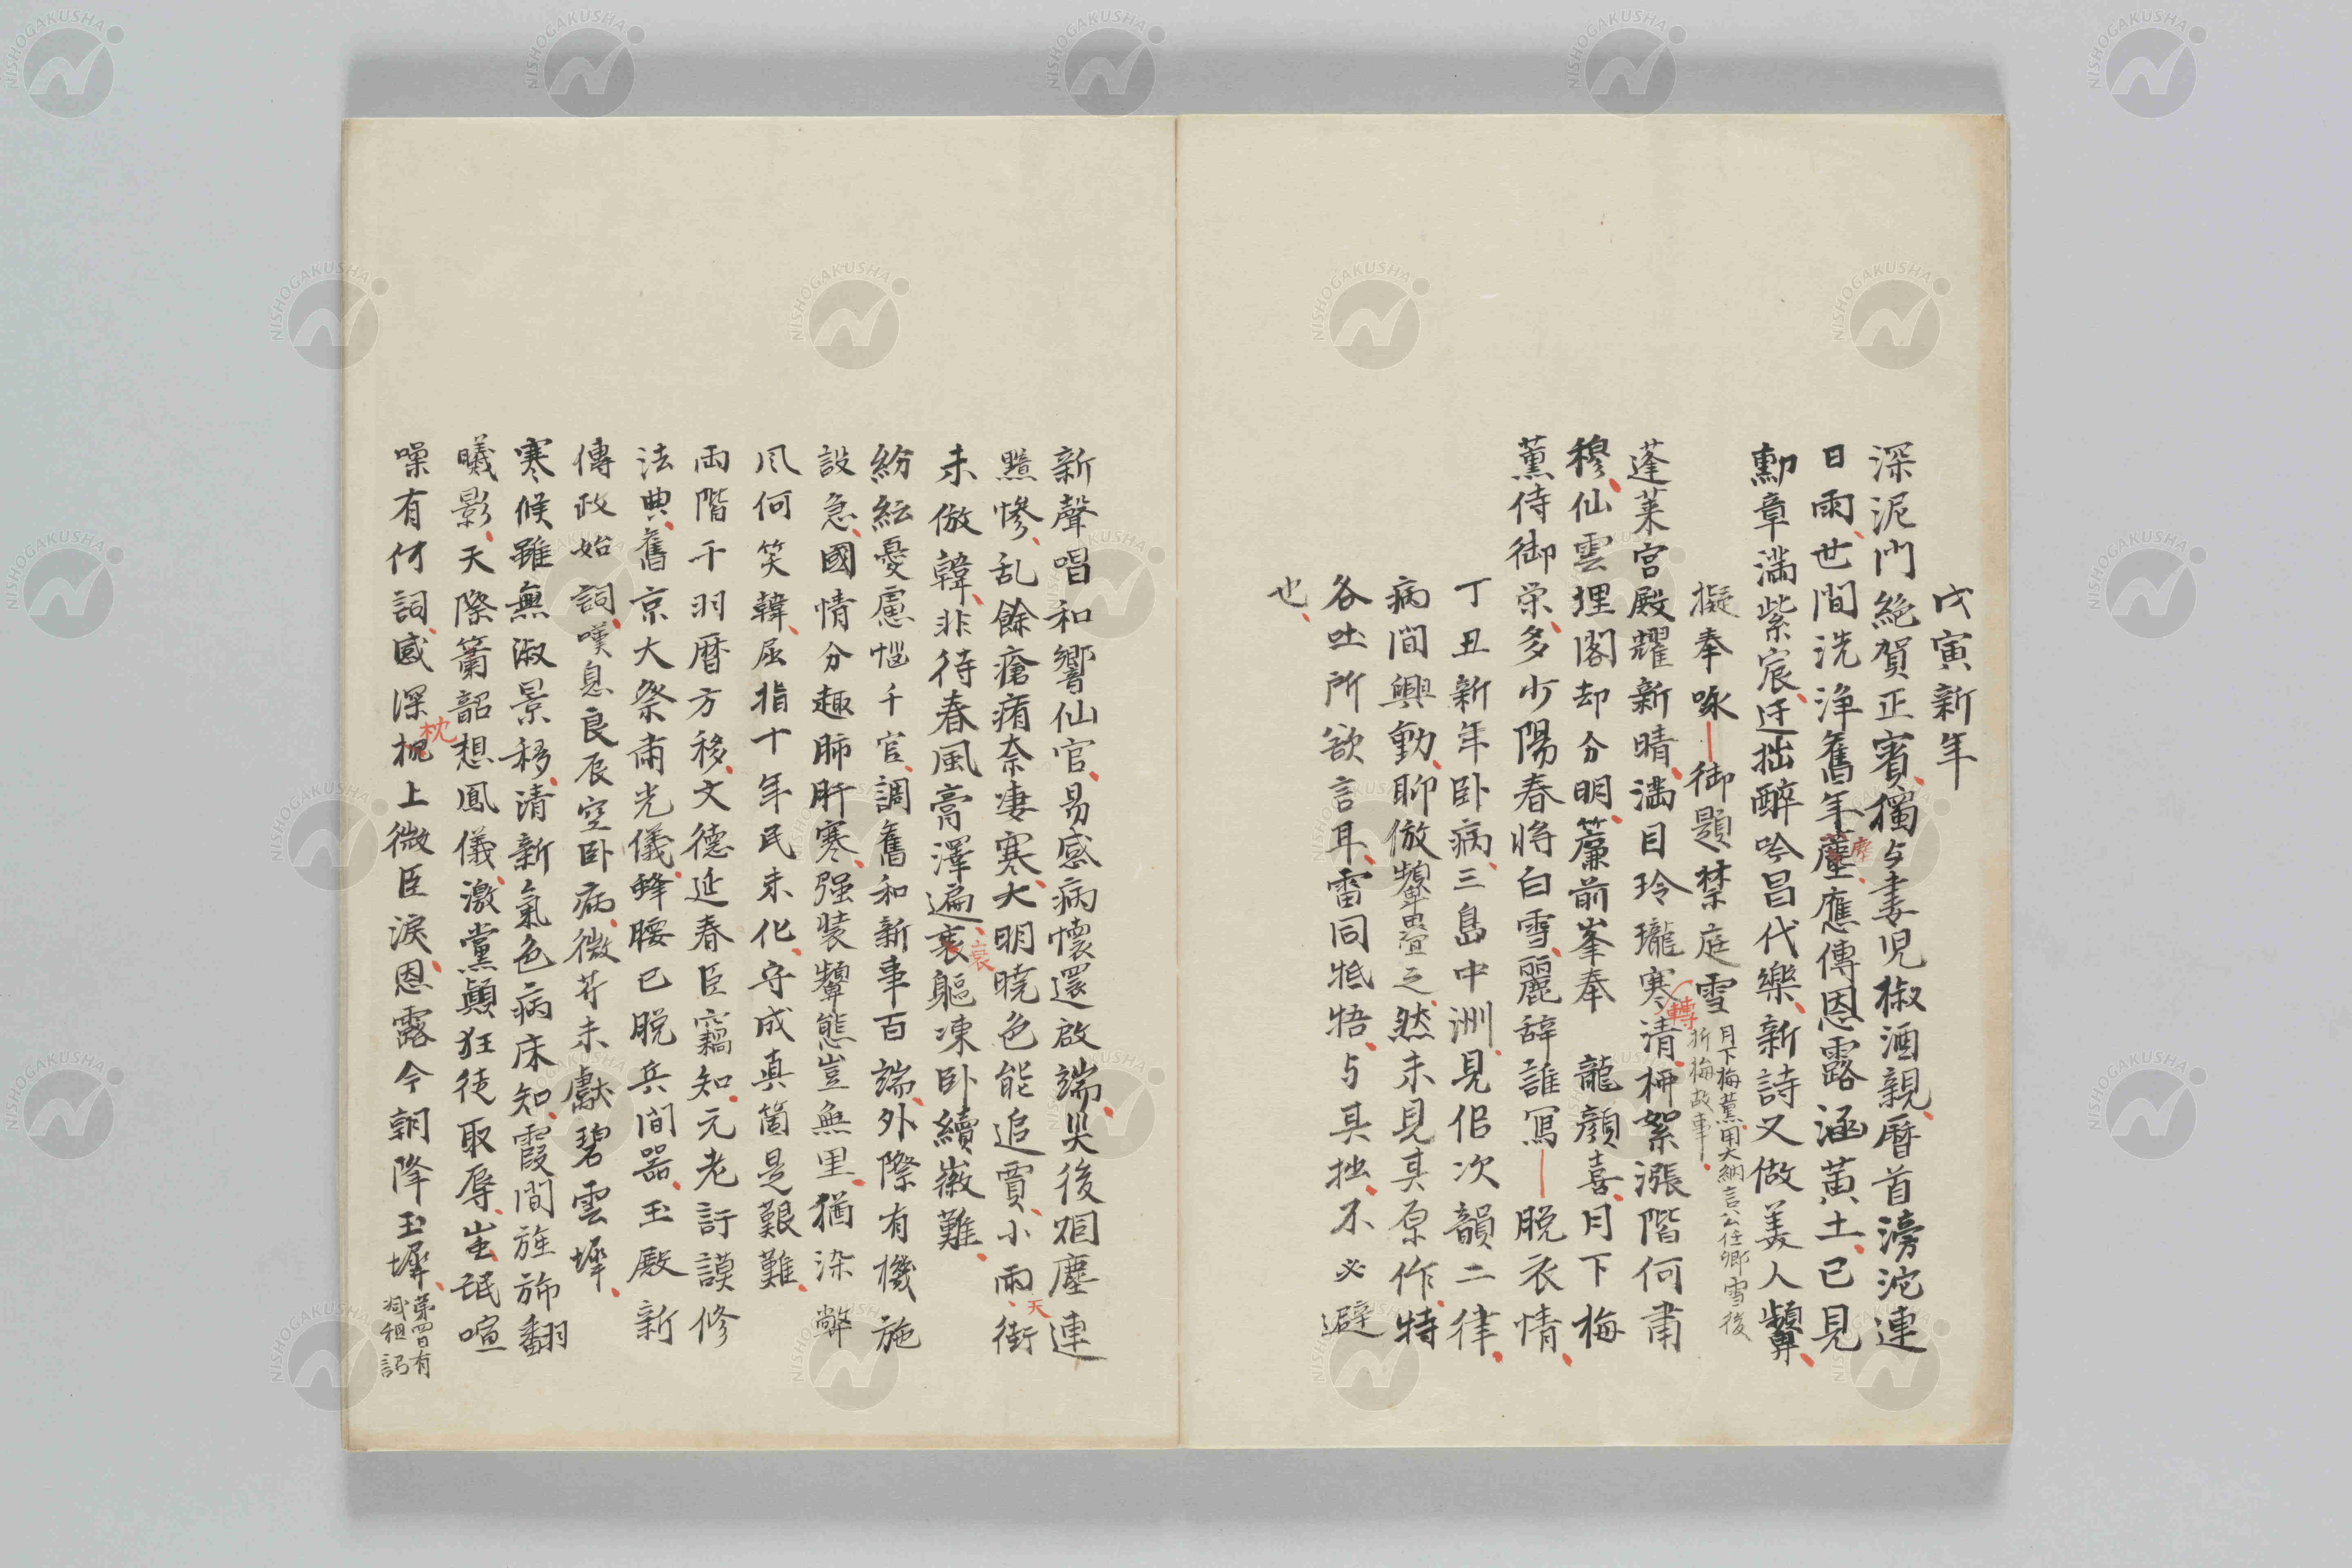 戊寅新年
深泥門絶賀正賓獨与妻児椒酒親暦首滂沱連
日雨世間洗浄舊年塵應傳恩露涵黄土已見
勳章満紫宸迂拙醉吟昌代樂新詩又倣美人顰
擬奉咏御題禁庭雪
月下梅薫用大納言公任卿雪後
折梅故事
蓬莱宮殿耀新晴満目玲瓏寒轉清柳絮漲階何肅
穆仙雲埋閣却分明簾前峯奉 龍顔喜月下梅
薫侍御栄多少陽春将白雪麗辞誰冩脱衣情
丁丑新年卧病三島中洲見佀次韻二律
病間興動聊倣顰 之然未見其原作特
各吐所欲言耳雷同牴牾与其拙不必避
也
新聲唱和響仙官易感病懷還啟端災後烟塵連
黯惨乱餘瘡痏奈凄寒大明曉色能追賈小雨天街
未倣韓非待春風膏澤遍衰軀凍卧續嶶難
紛紜憂慮惱千官調舊和新事百端外際有機施
設急國情分趣肺肝寒强装顰態豈無里猶染弊
风何笑韓屈指十年民未化守成真箇是艱難
両階干羽暦方移文徳延春臣竊知元老訏謨修
法典舊京大祭肅光儀蜂腰已脱兵間器玉殿新
傳政始詞嘆息良辰空卧病微芹未獻碧雲墀
寒候雖無淑景移清新氣色病床知霞間旌斾翻
曦影天際簫韶想鳳儀激黨顛狂徒取辱蚩氓喧
噪有何詞感深枕上微臣涙恩露今朝降玉墀
第四日有
減租詔
NISHOGAKUSHA